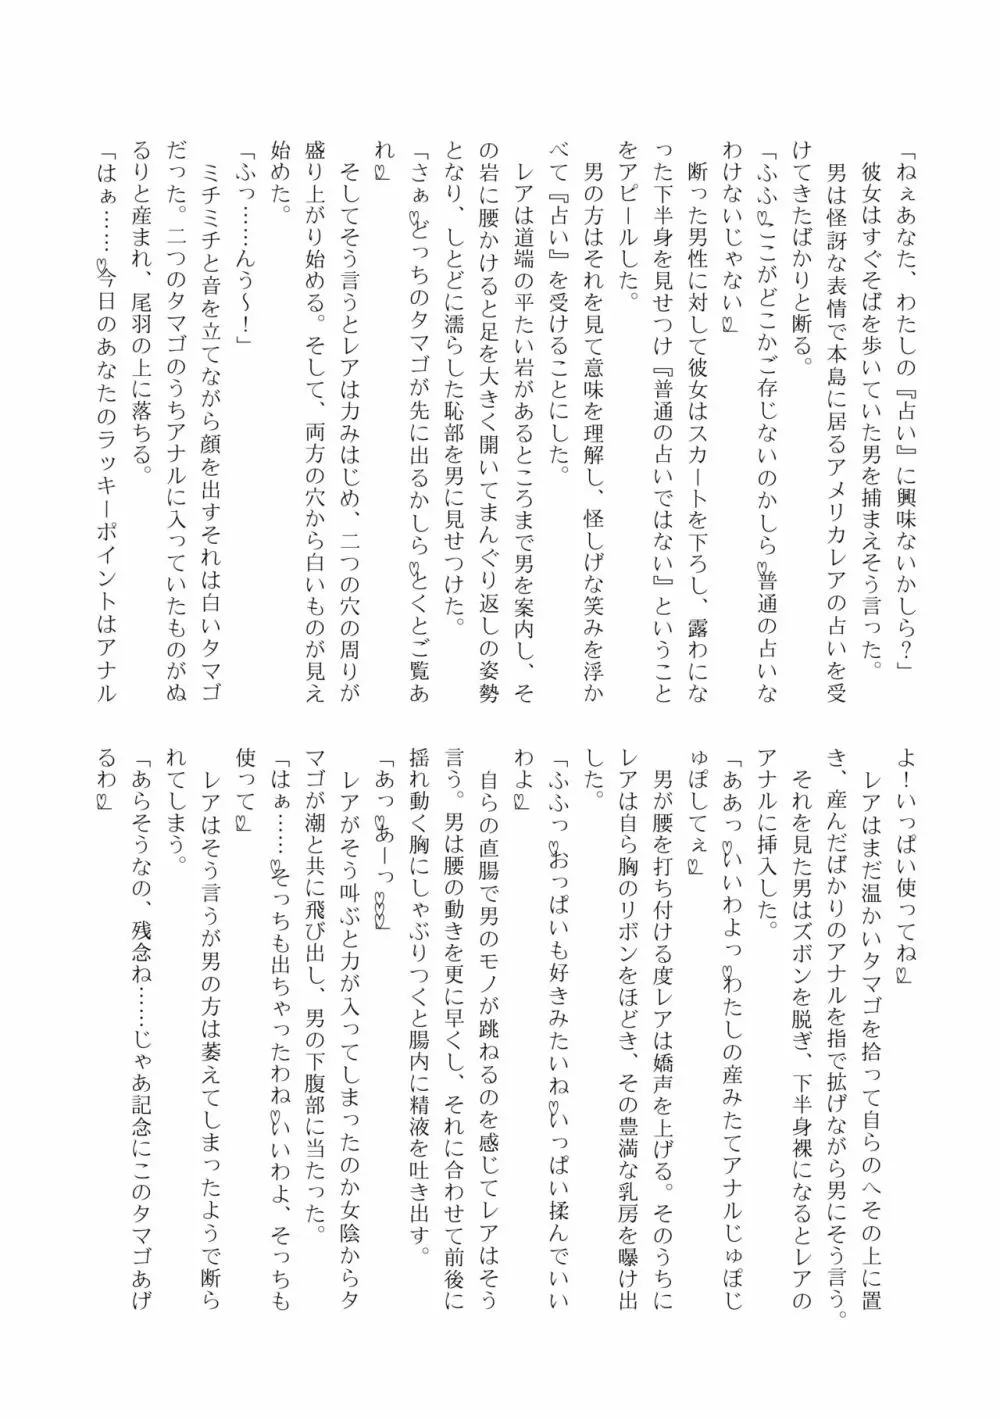 「ねぇあなた、わたしの『占い』に興味ないかしら？」
　彼女はすぐそばを歩いていた男を捕まえそう言った。
　男は怪訝な表情で本島に居るアメリカレアの占いを受
けてきたばかりと断る。
「ふふ♡ここがどこかご存じないのかしら♡普通の占いな
わけないじゃない♡」
　断った男性に対して彼女はスカートを下ろし、露わにな
った下半身を見せつけ『普通の占いではない』ということ
をアピールした。
　男の方はそれを見て意味を理解し、怪しげな笑みを浮か
べて『占い』を受けることにした。
　レアは道端の平たい岩があるところまで男を案内し、そ
の岩に腰かけると足を大きく開いてまんぐり返しの姿勢
となり、しとどに濡らした恥部を男に見せつけた。
「さぁ♡どっちのタマゴが先に出るかしら♡とくとご覧あ
れ♡」
　そしてそう言うとレアは力みはじめ、二つの穴の周りが
盛り上がり始める。そして、両方の穴から白いものが見え
始めた。
「ふっ……んう～！」
　ミチミチと音を立てながら顔を出すそれは白いタマゴ
だった。二つのタマゴのうちアナルに入っていたものがぬ
るりと産まれ、尾羽の上に落ちる。
「はぁ……♡今日のあなたのラッキーポイントはアナル
よ！いっぱい使ってね♡」
　レアはまだ温かいタマゴを拾って自らのへその上に置
き、産んだばかりのアナルを指で拡げながら男にそう言う。
　それを見た男はズボンを脱ぎ、下半身裸になるとレアの
アナルに挿入した。
「ああっ♡いいわよっ♡わたしの産みたてアナルじゅぽじ
ゅぽしてぇ♡」
　男が腰を打ち付ける度レアは嬌声を上げる。そのうちに
レアは自ら胸のリボンをほどき、その豊満な乳房を曝け出
した。
「ふふっ♡おっぱいも好きみたいね♡いっぱい揉んでいい
わよ♡」
　自らの直腸で男のモノが跳ねるのを感じてレアはそう
言う。男は腰の動きを更に早くし、それに合わせて前後に
揺れ動く胸にしゃぶりつくと腸内に精液を吐き出す。
「あっ♡あーっ♡♡♡」
　レアがそう叫ぶと力が入ってしまったのか女陰からタ
マゴが潮と共に飛び出し、男の下腹部に当たった。
「はぁ……♡そっちも出ちゃったわね♡いいわよ、そっちも
使って♡」
　レアはそう言うが男の方は萎えてしまったようで断ら
れてしまう。
「あらそうなの、残念ね……じゃあ記念にこのタマゴあげ
るわ♡」